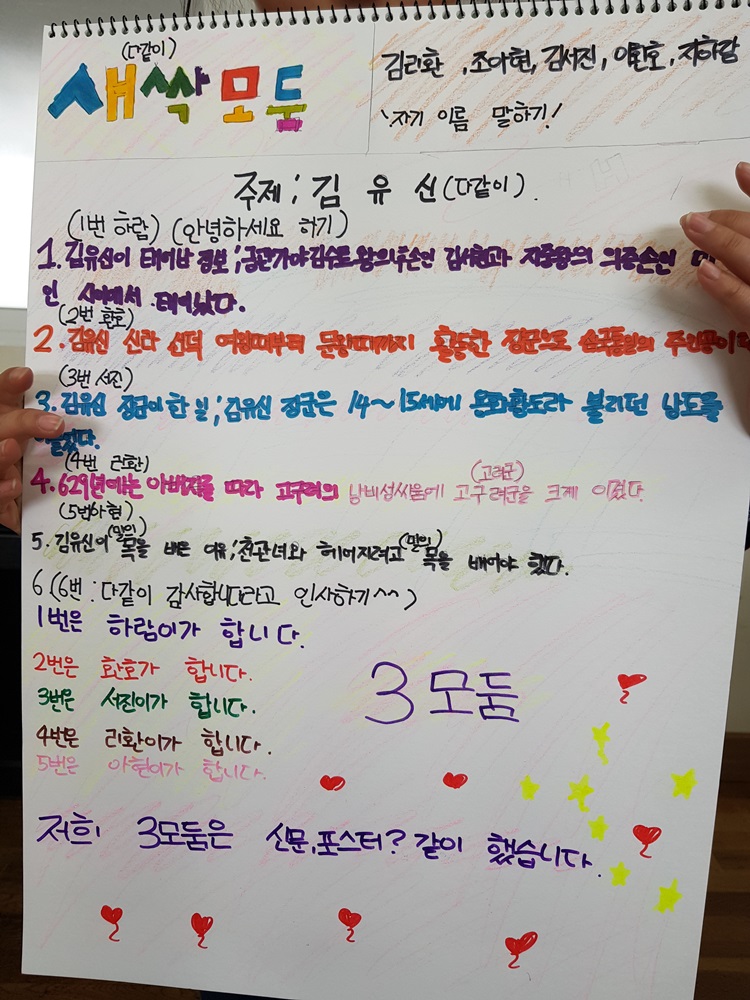 (다같이)
새싹 모둠
김리환, 조아현, 김서진, 이환호, 지하람
자기 이름 말하기!
주제; 김 유 신(다같이).
(1번 하람) (안녕하세요 하기)
1. 김유신이 태어난 정보; 금관가야 김수로왕의 후손인 김서현과 지증왕의 의증손인
인 사이에서 태어났다.
(2번 환호)
2. 김유신 신라 선덕 여왕때부터 문왕때까지 활동한 장군으로 삼국통일의 주인공이
(3번 서진)
3. 김유신 장군이 한 일; 김유신 장군은 14~15세에 용화향도라 불리던 낭도를
(4번 리환)
(고려군)
4. 629년에는 아버지를 따라 고구려의 낭비성싸움에 고구려군을 크게 이겼다.
(5번아현)
(말의) (말의)
5. 김유신이 목을 벤 이유; 천관녀와 헤어지려고 목을 배어야 했다.
6 (6번: 다같이 감사합니다라고 인사하기^^)
1번은 하람이가 합니다.
2번은 환호가 합니다.
3번은 서진이가 합니다.
4번은 리환이가 합니다.
5번은 아현이가 합니다.
3모둠
저희 3모둠은 신문,포스터? 같이 했습니다.